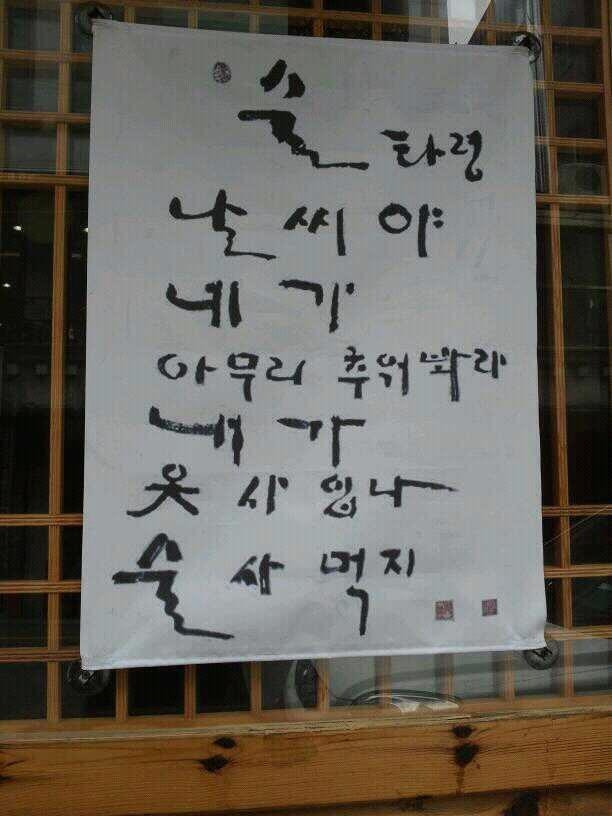 술 타령
날 씨 야
네 가
아무리 추워봐라
내 가
옷 사 입나
술 사 먹지